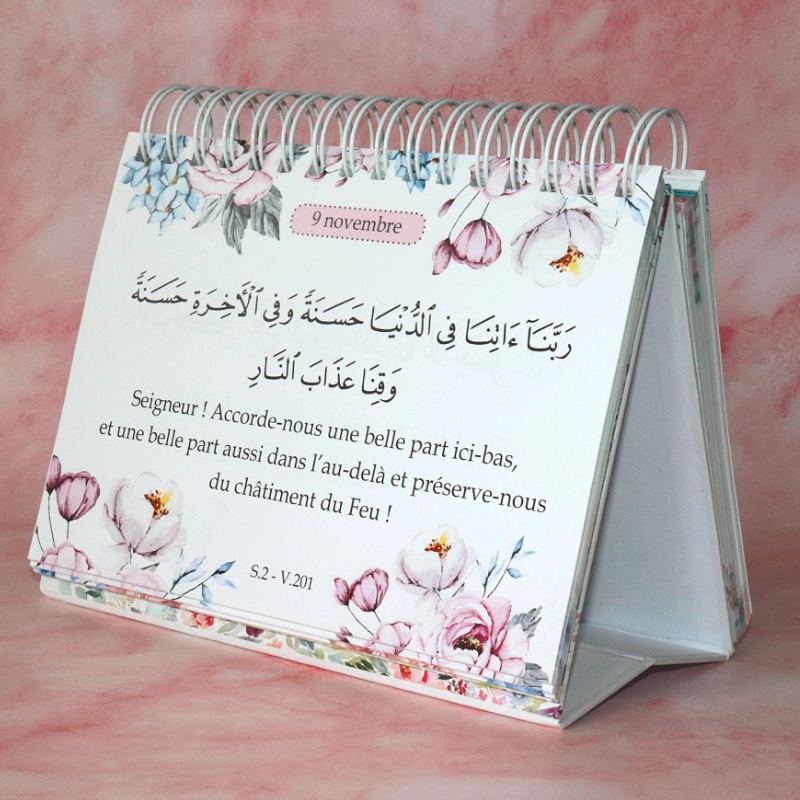 9 novembre
رَبَّنَآ ءَاتِنَا فِي ٱلدُّنْيَا حَسَنَةً وَفِي ٱلْأَخِرَةِ حَسَنَةً
وَقِنَا عَذَابَ ٱلنَّارِ
Seigneur ! Accorde-nous une belle part ici-bas,
et une belle part aussi dans l’au-delà et préserve-nous
du châtiment du Feu !
S.2 - V.201